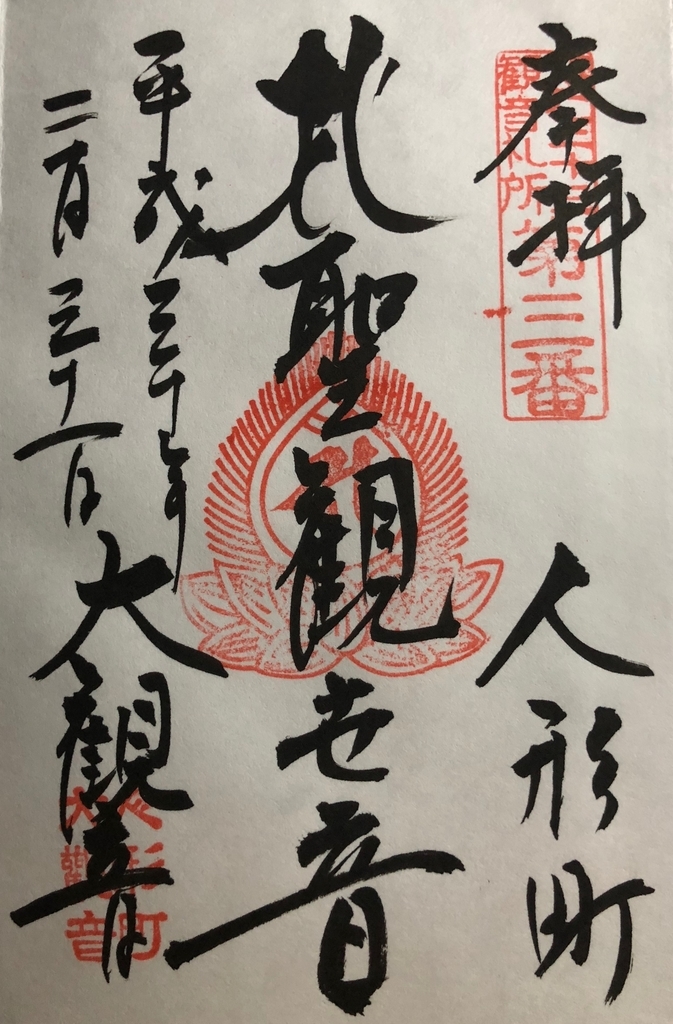 奉拝
観音札所第三番
人形町
聖観世音
平成三十年
三月三十一日
大観音
人形町
大観音